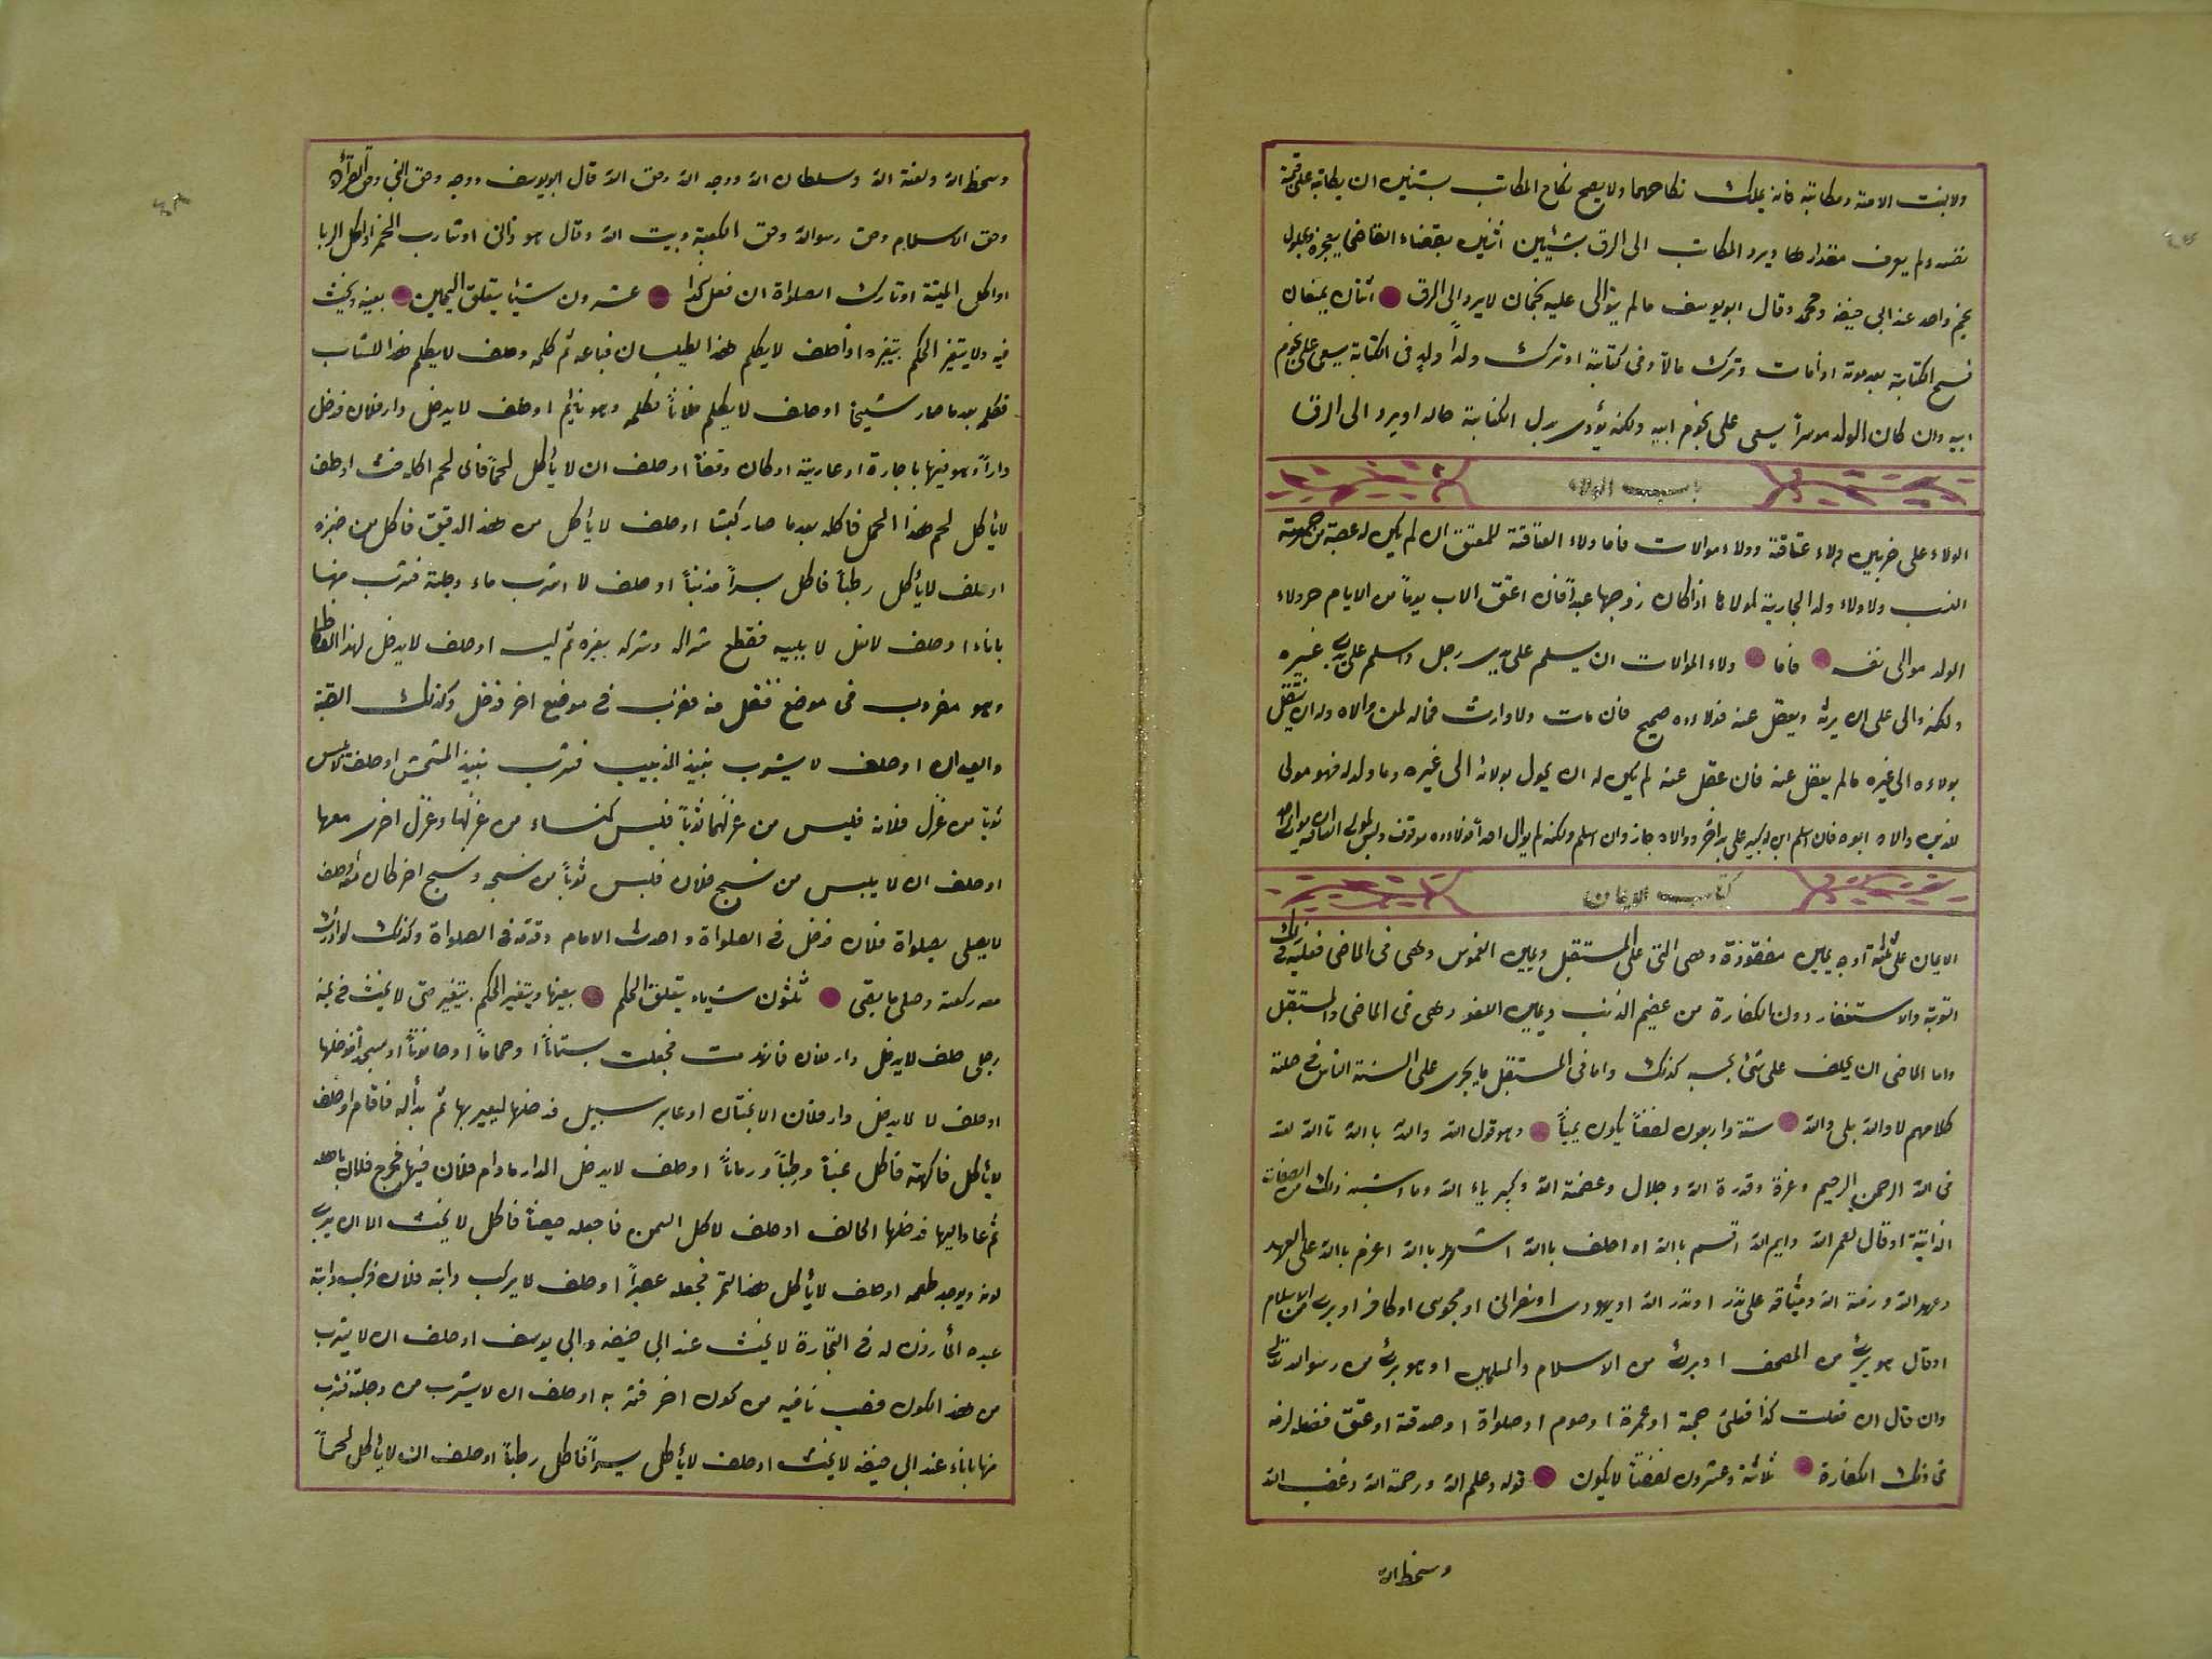 ولا بنت الامته ومكاتبة فانه يملك نكاحهما ولا يصح نكاح المكاتب بشيئين ان يكاتبه على قيمة
نفسه ولم يعرف مقدارها ويرد المكاتب الى الرق بشيئين اثنين بقضاء القاضى بعجزه وبحلول
نجم واحد عند ابى حنيفة ومحمد وقال ابو يوسف مالم يتوالى عليه نجمان لا يرد الى الرق اثنان يمنعان
فسخ الكتابة بعد موته اذا مات وترك مالا وفى كتابة او ترك ولداً ولد فى الكتابة يسعى على نجوم
ابيه وان كان الولد موسراً يسعى على نجوم ابيه ولكنه يؤدى بدل الكتابة حاله او يرد الى الرق
باب الولاء
الولاء على ضربين ولاء عتاقة وولاء موالات فاما ولاء العتاقة للمعتق ان لم يكن له عصبة من جهة
النسب ولا ولاء ولد الجارية لمولاها اذا كان زوجها عبداً فان اعتق الاب يوماً من الايام جر ولاء
الولد موالى نفسه فاما ولاء الموالات ان يسلم على يدى رجل واسلم على يدى غيره
ولكنه والى على ان يرثه ويعقل عنه فولاءه صحيح فان مات ولا وارث فماله لمن والاه وله ان ينتقل
بولاءه الى غيره مالم يعقل عنه فان عقل عنه لم يكن له ان يحول بولائه الى غيره وما ولد له فهو مولى
للذى والاه ابوه فان اسلم ابن له كبير على يد اخر ووالاه جاز وان اسلم ولكنه لم يوال احداً فولاءه موقوف وليس لمولى العتاقة ان يوالى احد
كتاب الايمان
الايمان على ثلثة اوجه يمين معقودة وهى التى على المستقبل ويمين الغموس وهى فى الماضى فعليه فى ذلك
التوبة والاستغفار دون الكفارة من عضيم الذنب ويمين اللغو وهى فى الماضى والمستقبل
واما الماضى ان يحلف على شئ يحسبه كذلك واما فى المستقبل ما يجرى على السنة الناس فى صلة
كلامهم لا والله بلى والله ستة واربعون لفضاً يكون يميناً وهو قول الله والله باالله تاالله لله
فى الله الرحمن الرحيم وعزة وقدرة الله وجلال وعضمة الله وكبرياء الله وما اشبه ذلك من الصفات
الذاتية او قال لعمر الله وايم الله اقسم باالله او احلف باالله اشهد باالله اعزم باالله على العهد
وعهد الله وذمة الله وميثاقه على نذر او نذر الله او يهودى او نصرانى او مجوسى او كافر او برى من الاسلام
او قال هو برئ من المصحف او برئ من الاسلام والمسلمين او هو برئ من رسول الله
وان قال ان فعلت كذا فعلى حجة او عمرة او صوم او صلواة او صدقة او عتق ففعله لزمه
فى ذلك الكفارة ثلاثة وعشرون لفضاً لا يكون قوله وعلم الله ورحمة الله وغضب الله
وسخط الله
وسخط الله ولعنة الله وسلطان الله ووجه الله وحق الله قال ابو يوسف ووجه وحق النبي وحق القرآن
وحق الاسلام وحق رسول الله وحق الكعبة وبيت الله وقال هو زانى او شارب الخمر او اكل الربا
او اكل الميتة او تارك الصلواة ان فعل كذا عشرون شيئاً يتعلق اليمين بعينه ويحنث
فيه ولا يتغير الحكم بتغيره اذا حلف لا يكلم هذا الطيلسان فباعه ثم كلمه وحلف لا يكلم هذا الشاب
فكلم بعد ما صار شيخاً او حلف لا يكلم فلاناً فكلمه وهو نائم او حلف لا يدخل دار فلان فدخل
داراً وهو فيها باجارة او عارية او كان وقفاً او حلف ان لا يأكل لحماً فاى لحم اكله حنث او حلف
لا يأكل لحم هذا الحمل فاكله بعد ما صار كبشا او حلف لا يأكل من هذ الدقيق فاكل من خبزه
او حلف لا يأكل رطباً فاكل بسراً مذنباً او حلف لا اشرب ماء دجلة فشرب منها
باناء او حلف لا يلبسه فقطع شراكه وشركه بغيره ثم لبسه او حلف لا يدخل لهذا الفسطاط
وهو مضروب فى موضع فنقل منه فضرب فى موضع اخر فدخل وكذلك القبة
والعيدان او حلف لا يشرب نبيذ الذبيب فشرب نبيذ المشمش او حلف لا يلبس
ثوبا من غزل فلانه فلبس من غزلهما ثوباً فلبس كساء من غزلها وغزل اخرى معها
او حلف ان لا يلبس من نسج فلان فلبس ثوباً من نسجه ونسج اخر كان معه او حلف
لا يصلى بصلواة فلان فدخل فى الصلواة واحدث الامام وقدمه فى الصلواة وكذلك لو ادرك
معه ركعة وصلى ما بقى ثلثون شياء يتعلق الحكم بعينها ويتغير الحكم بتغير حتى لا يحنث فى يمينه
رجل حلف لا يدخل دار فلان فانهدمت فجعلت بستاناً او حماماً او حانوتاً او مسجداً فدخلها
او حلف لا لا يدخل دار فلان الا مجتازا او عابر سبيل فدخلها ليعبر بها ثم بدأ له فاقام او حلف
لا يأكل فاكهة فاكل عنباً ورطباً ورماناً او حلف لا يدخل الدار مادام فلان فيها فخرج فلان باهله
ثم عاد اليها فدخلها الحالف او حلف لا كل السمن فاجعله خبيصاً فاكل لا يحنث الا ان يرى
لونه ويوجد طعمه او حلف لا يأكل هذا التمر فجعله عصيراً او حلف لا يركب دابة فلان فركب دابة
عبده المأزون له فى التجارة لا يحنث عند ابى حنيفة وابى يوسف او حلف ان لا يشرب
من هذ الكوز فصب ما فيه من كوز اخر فشربه او حلف ان لا يشرب من دجلة فشرب
منها باناء عند ابى حنيفة لا يحنث او حلف لا يأكل بسراً فاكل رطباً او حلف ان لا يأكل لحماً